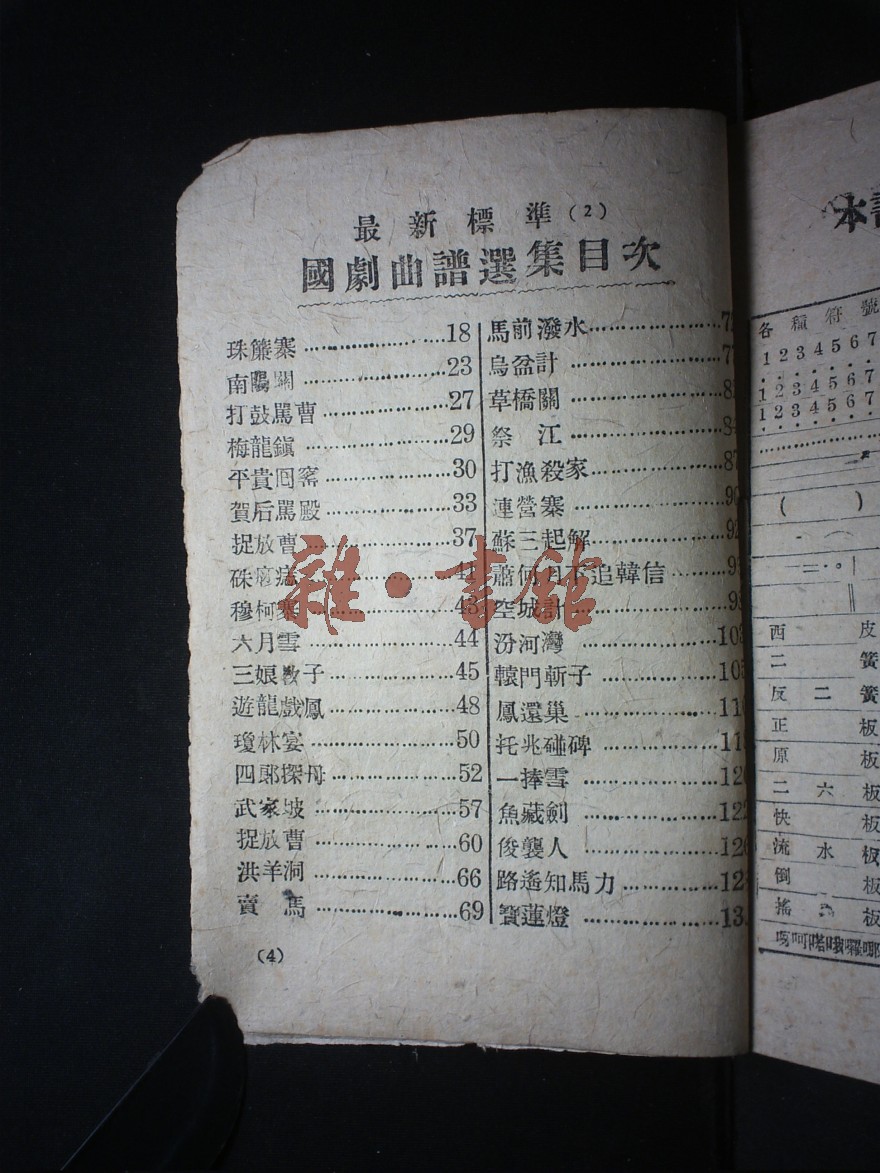 最新標準(2)
國劇曲譜選集目次
珠簾寨 18
南陽關 23
打鼓罵曹 27
梅龍鎭 29
平貴回窰 30
賀后罵殿 33
捉放曹 37
硃痧痣
穆柯寨 43
六月雪 44
三娘教子 45
遊龍戲鳳 48
瓊林宴 50
四郞探母 52
武家坡 57
捉放曹 60
洪羊洞 66
賣馬 69
馬前潑水
烏盆計
草橋關
祭江
打漁殺家
連營寨
蘇三起解
蕭何月下追韓信
空城計
汾河灣
轅門斬子
鳳還巢
托兆碰碑
一捧雪
魚藏劍
俊襲人
路遙知馬力
寶蓮燈
(4)
雜·書館
本
各種符號
1234567
1234567
1234567
( )
西皮
二簧
反二簧
正板
原板
二六板
快板
流水板
倒板
搖板